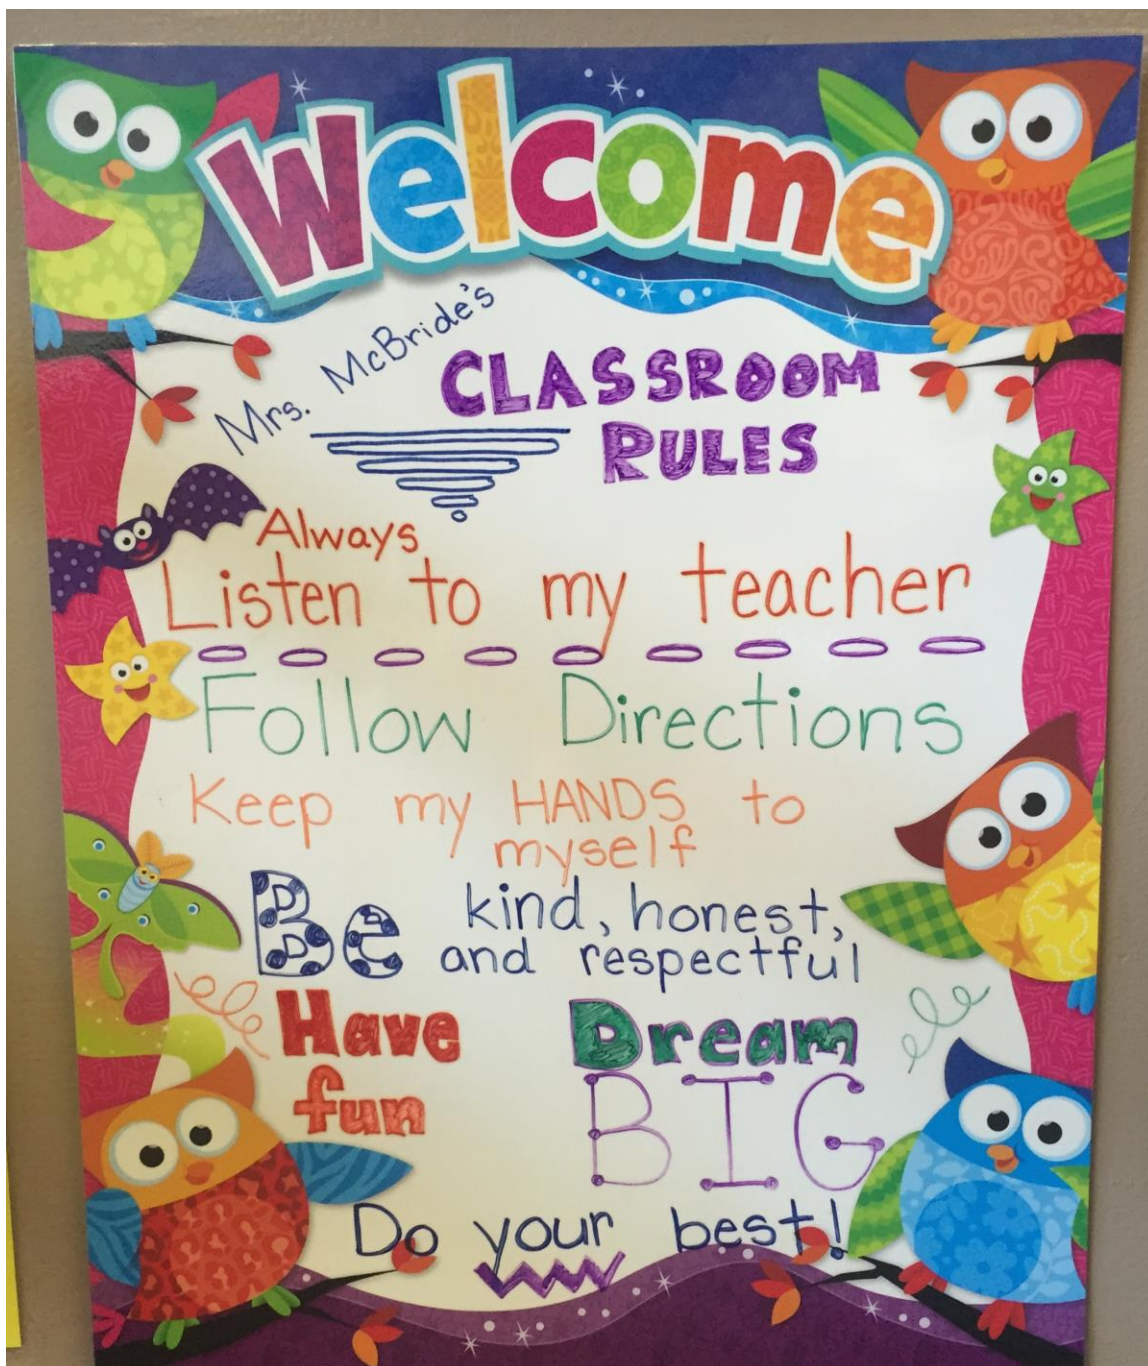 Welcome
Mrs. McBride's
CLASSROOM
RULES
Always
Listen to my teacher
Follow Directions
Keep my HANDS to
myself
Be kind, honest,
and respectful
Have
fun
Dream
BIG
Do your best!